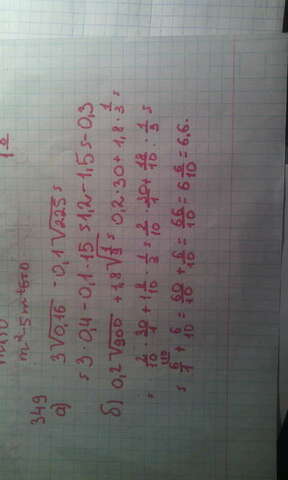 m²-5m-6=0
349
а) 3√0,16 - 0,1√225 =
= 3·0,4-0,1·15 = 1,2-1,5 = -0,3
б) 0,2√900 + 1,8√1/9 = 0,2·30+1,8·1/3 =
= 2/10·30/1+1 8/10·1/3 = 2/10·30/1+18/10·1/3 =
= 6/1+6/10=60/10+6/10=66/10=6 6/10=6,6.